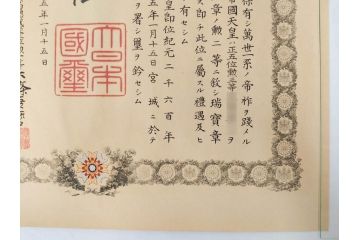 保有シ萬世一系ノ帝祚ヲ踐メル
帝國天皇ハ正五位勲三等
ヲ
章ノ勲二等ニ敘シ瑞寶章
ス即チ此位ニ屬スル禮遇及ヒ
有セシム
皇即位紀元二千六百年
五年一月十五日宮城ニ於テ
ヲ署シ璽ヲ鈐セシム
大日本國璽
五年一月十五日